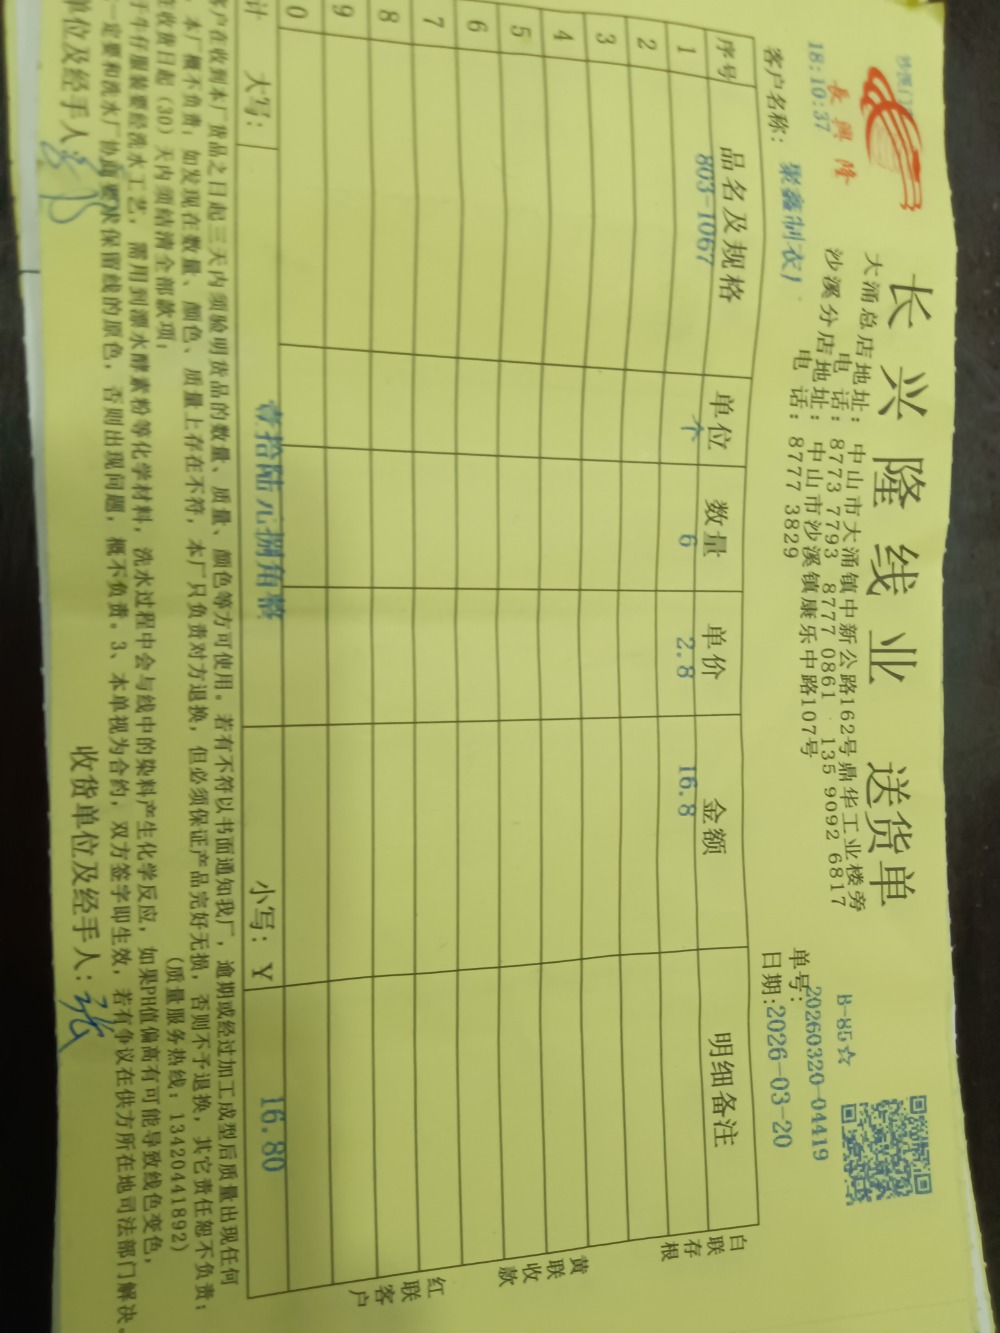 18:10:37
長興隆
长兴隆线业 送货单
B-85☆
大涌总店地址:中山市大涌镇中新公路162号鼎华工业楼旁
电 话:8773 7793 8777 0861 135 9092 6817
沙溪分店地址:中山市沙溪镇康乐中路107号
电 话:8777 3829
单号:20260320-04419
客户名称:聚鑫制衣1
日期:2026-03-20
序号 品名及规格 单位 数量 单价 金额 明细备注
1 803-1067 个 6 2.8 16.8
2
3
4
5
6
7
8
9
0
计 大写: 壹拾陆元捌角整 小写:Y 16.80
白联存根
黄联收款
红联客户
客户在收到本厂货品之日起三天内须验明货品的数量、质量、颜色等方可使用。若有不符以书面通知我厂,逾期或经过加工成型后质量出现任何
,本厂概不负责;如发现在数量、颜色、质量上存在不符,本厂只负责对方退换,但必须保证产品完好无损,否则不予退换,其它责任恕不负责;
在收货日起(30)天内须结清全部款项; (质量服务热线:13420441892)
于牛仔服装要经洗水工艺,需用到漂水酵素粉等化学材料,洗水过程中会与线中的染料产生化学反应,如果PH值偏高有可能导致线色变色,
一定要和洗水厂协商要求保留线的原色,否则出现问题,概不负责。3、本单视为合约,双方签字即生效,若有争议在供方所在地司法部门解决。
单位及经手人: 收货单位及经手人:张